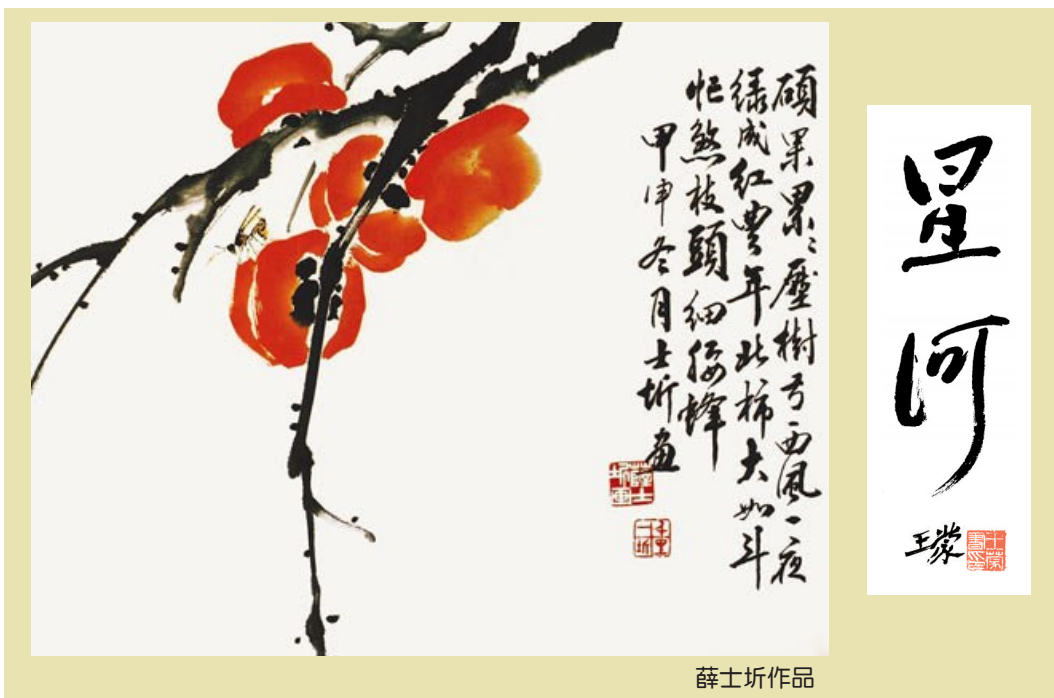 碩果累〻壓樹弓西風一夜
綠成紅豐年此柿大如斗
忙煞枝頭細腰蜂
甲申冬月士圻畫
薛士圻画
星河
王蒙
薛士圻作品